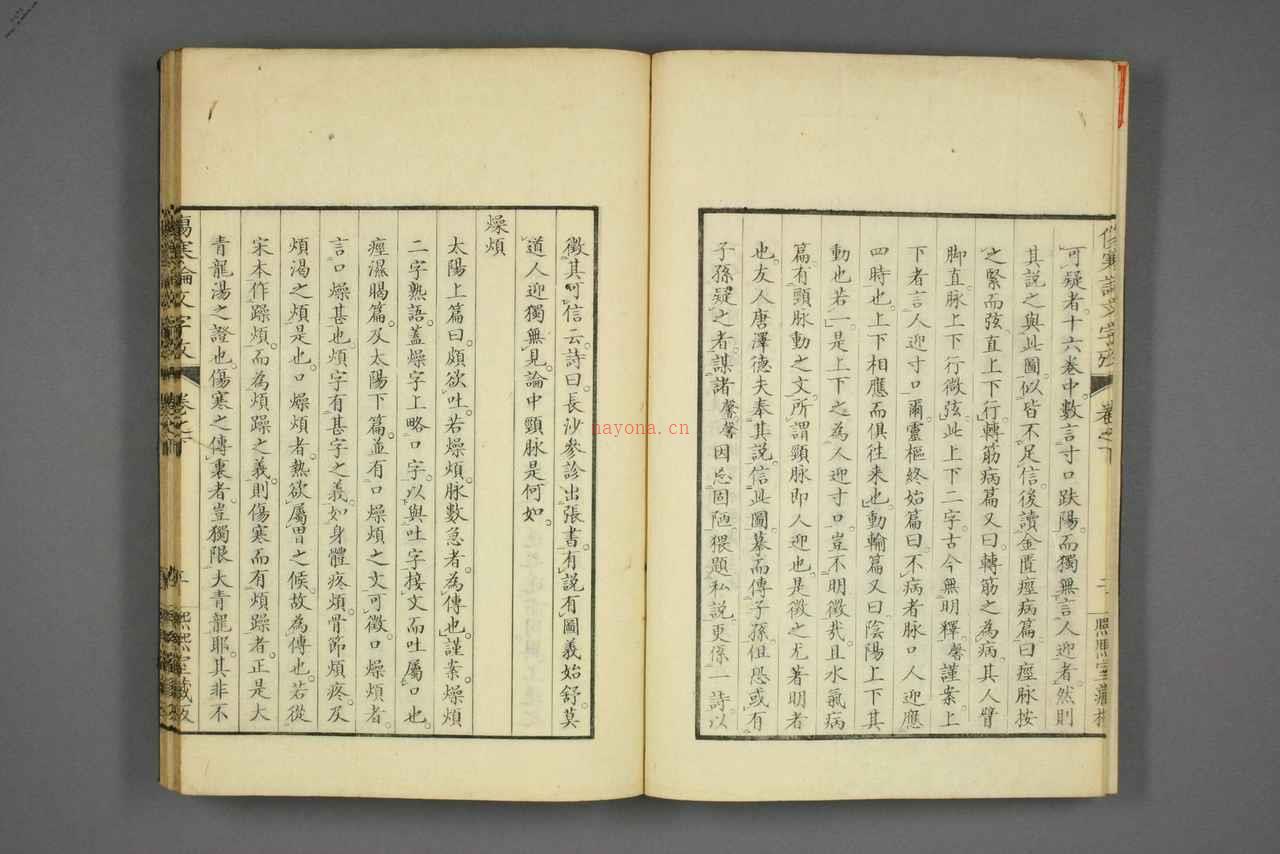 可疑者十六卷中數言寸口趺陽而獨無言人迎者然則
其說之與此圖似皆不足信後讀金匱痙病篇曰痙脉按
之緊而弦直上下行轉筋病篇又曰轉筋之為病其人臂
脚直脉上下行微弦此上下二字古今無明釋馨謹案上
下者言人迎寸口爾靈樞終始篇曰不病者脉口人迎應
四時也上下相應而俱往来也動輸篇又曰陰陽上下其
動也若一是上下之為人迎寸口豈不明徵哉且水氣病
篇有頸脉動之文所謂頸脉即人迎也是徵之尤著明者
也友人唐澤德夫奉其說信此圖摹而傳子孫但恐或有
子孫疑之者謀諸馨馨因忘固陋猥題私說更係一詩以
傷寒論文字攷
卷之下
熙熙室藏板
徵其可信云詩曰長沙參診出張書有說有圖義始舒莫
道人迎獨無見論中頸脉是何如
燥煩
太陽上篇曰頗欲吐若燥煩脉數急者為傳也謹案燥煩
二字熟語蓋燥字上略口字以與吐字接文而吐屬口也
痙濕暍篇及太陽下篇並有口燥煩之文可徵口燥煩者
言口燥甚也煩字有甚字之義如身體疼煩骨節煩疼及
煩渴之煩是也口燥煩者熱欲屬胃之候故為傳也若從
宋本作躁煩而為煩躁之義則傷寒而有煩躁者正是大
青龍湯之證也傷寒之傳裏者豈獨限大青龍耶其非不
傷寒論文字攷
卷之下
熙熙室藏板
nayona.cn